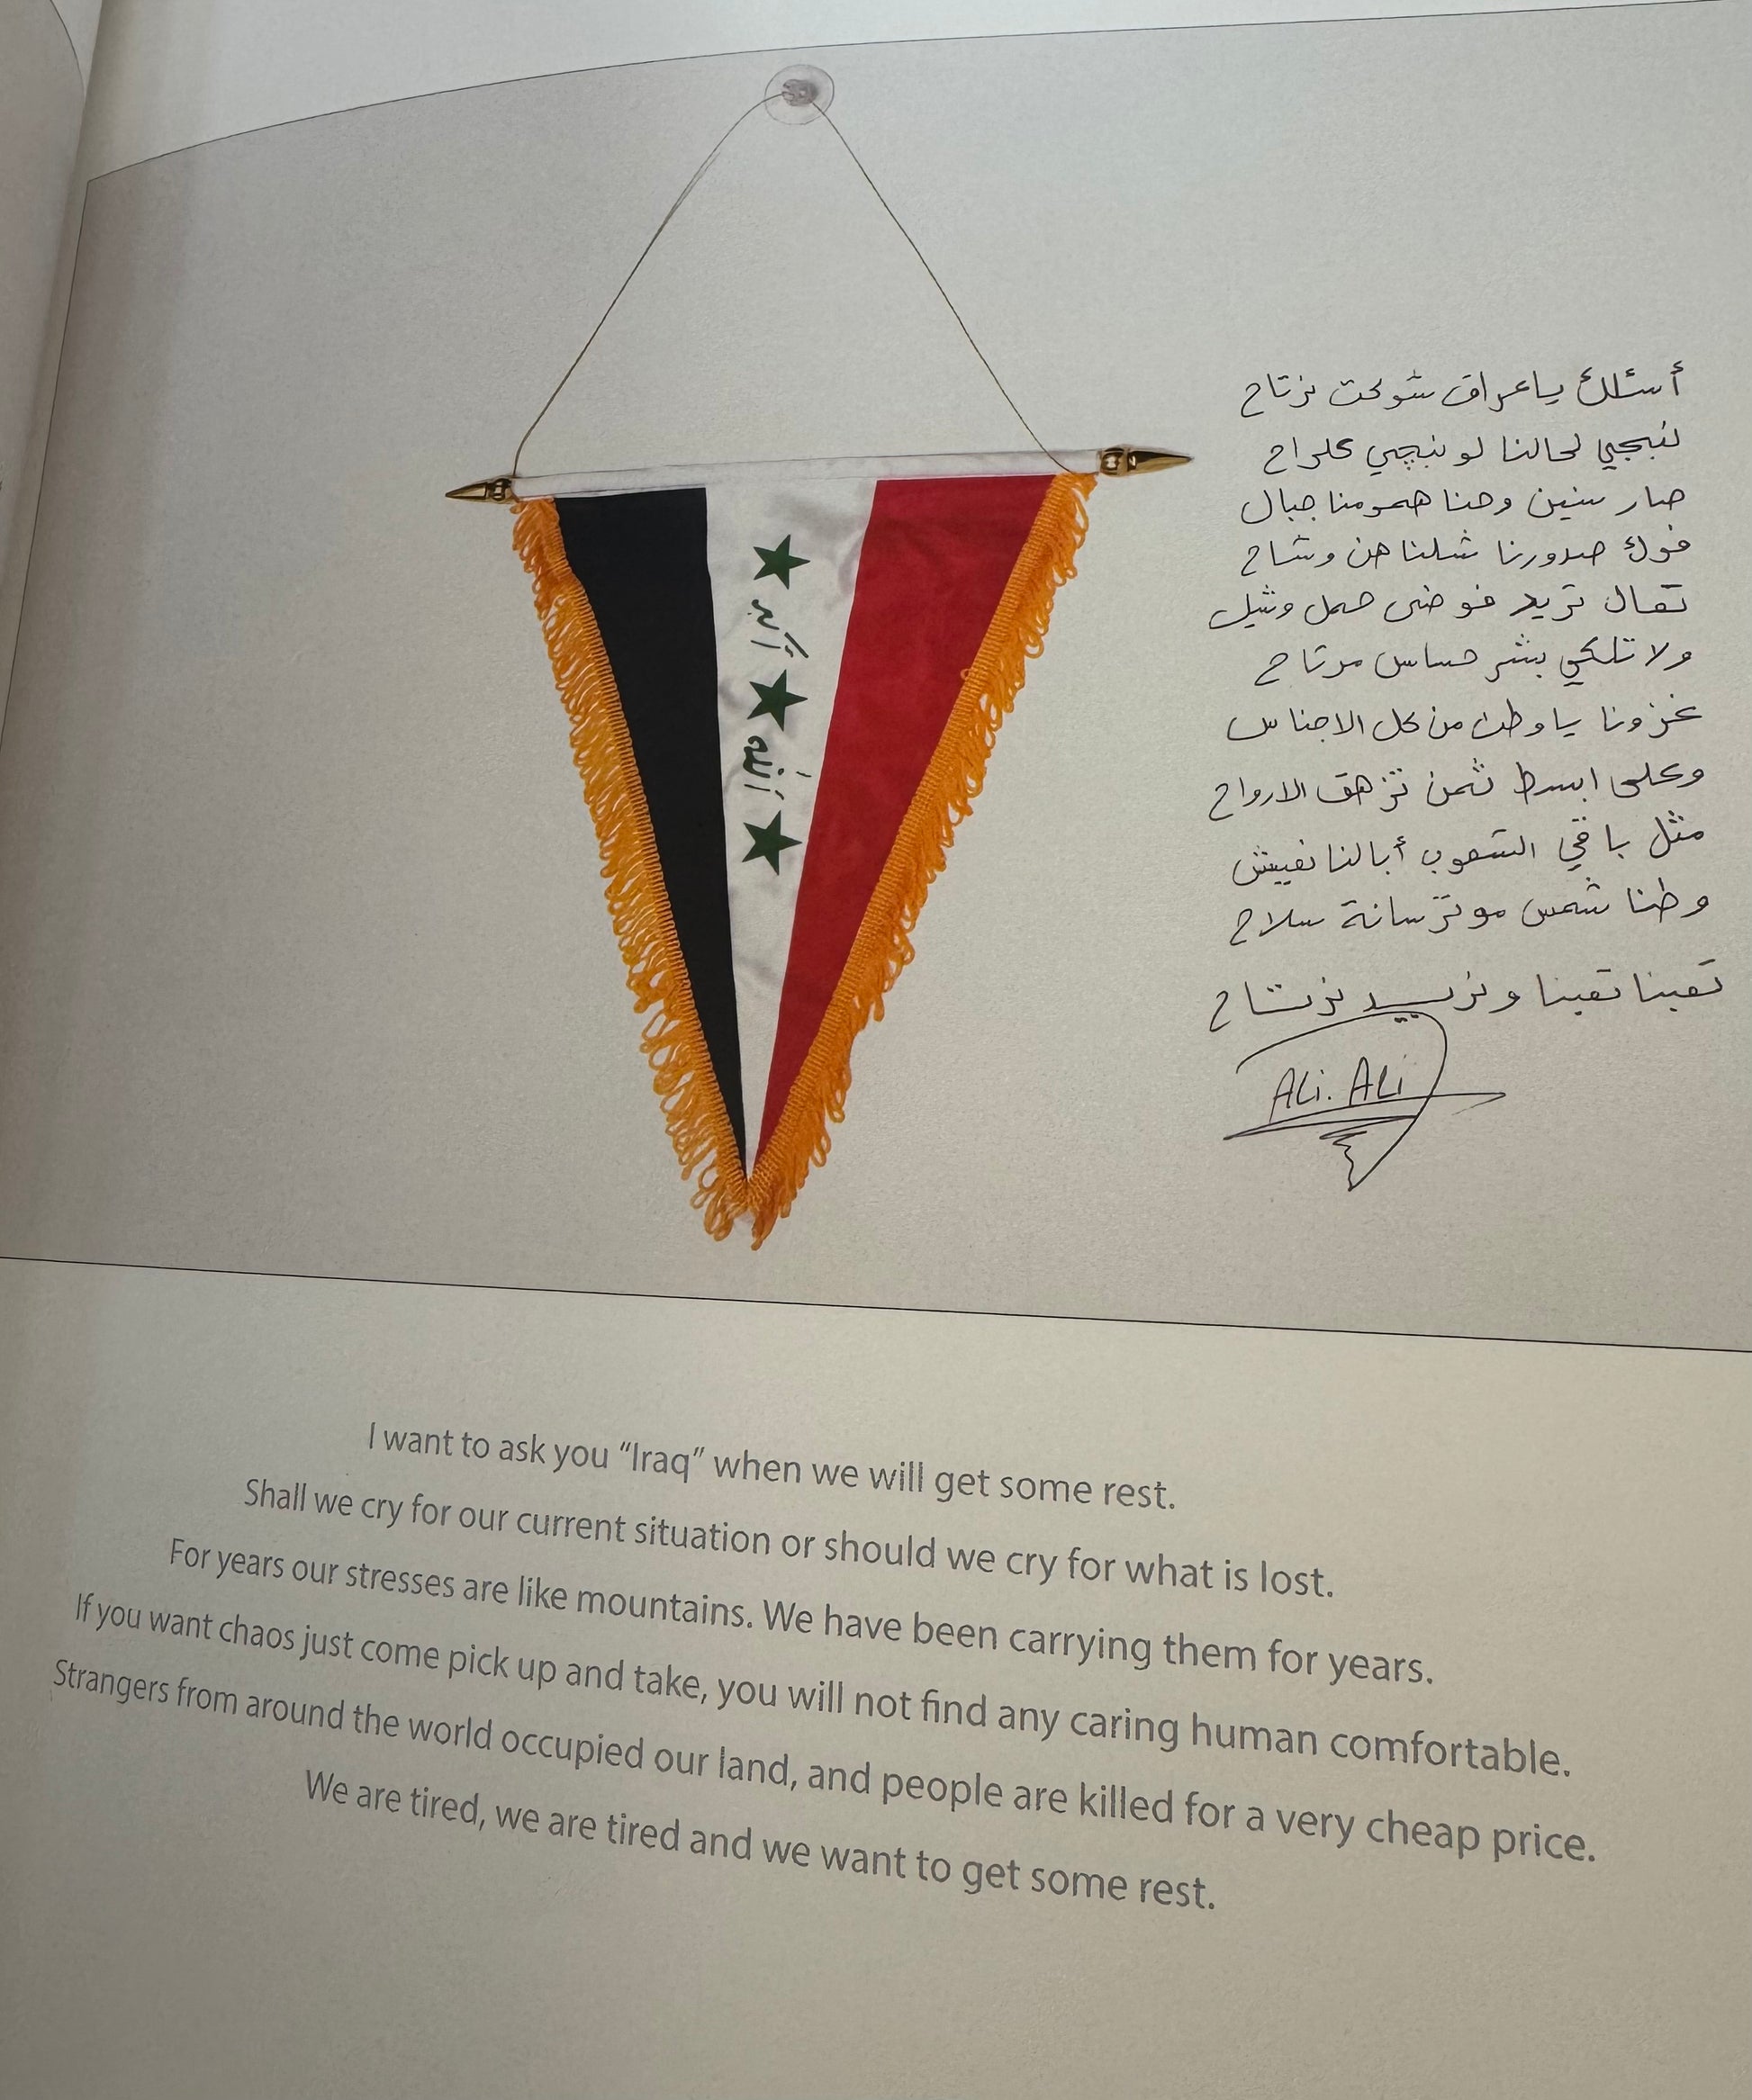 ★ الله ★ أكبر ★
أسئلك ياعراق شوكت نرتاح
نبجي لحالنا لو نبچي علراح
صار سنين وحنا همومنا جبال
فوك صدورنا شلناهن وشاح
تعال تريد فوضى حمل وشيل
ولا تلكي بشر حساس مرتاح
غزونا ياوطن من كل الاجناس
وعلى ابسط ثمن تزهق الارواح
مثل باقي الشعوب أبالنا نعيش
وطنا شمس مو ترسانة سلاح
تعبنا تعبنا ونريد نرتاح
ALi. ALi
I want to ask you “Iraq” when we will get some rest.
Shall we cry for our current situation or should we cry for what is lost.
For years our stresses are like mountains. We have been carrying them for years.
If you want chaos just come pick up and take, you will not find any caring human comfortable.
Strangers from around the world occupied our land, and people are killed for a very cheap price.
We are tired, we are tired and we want to get some rest.